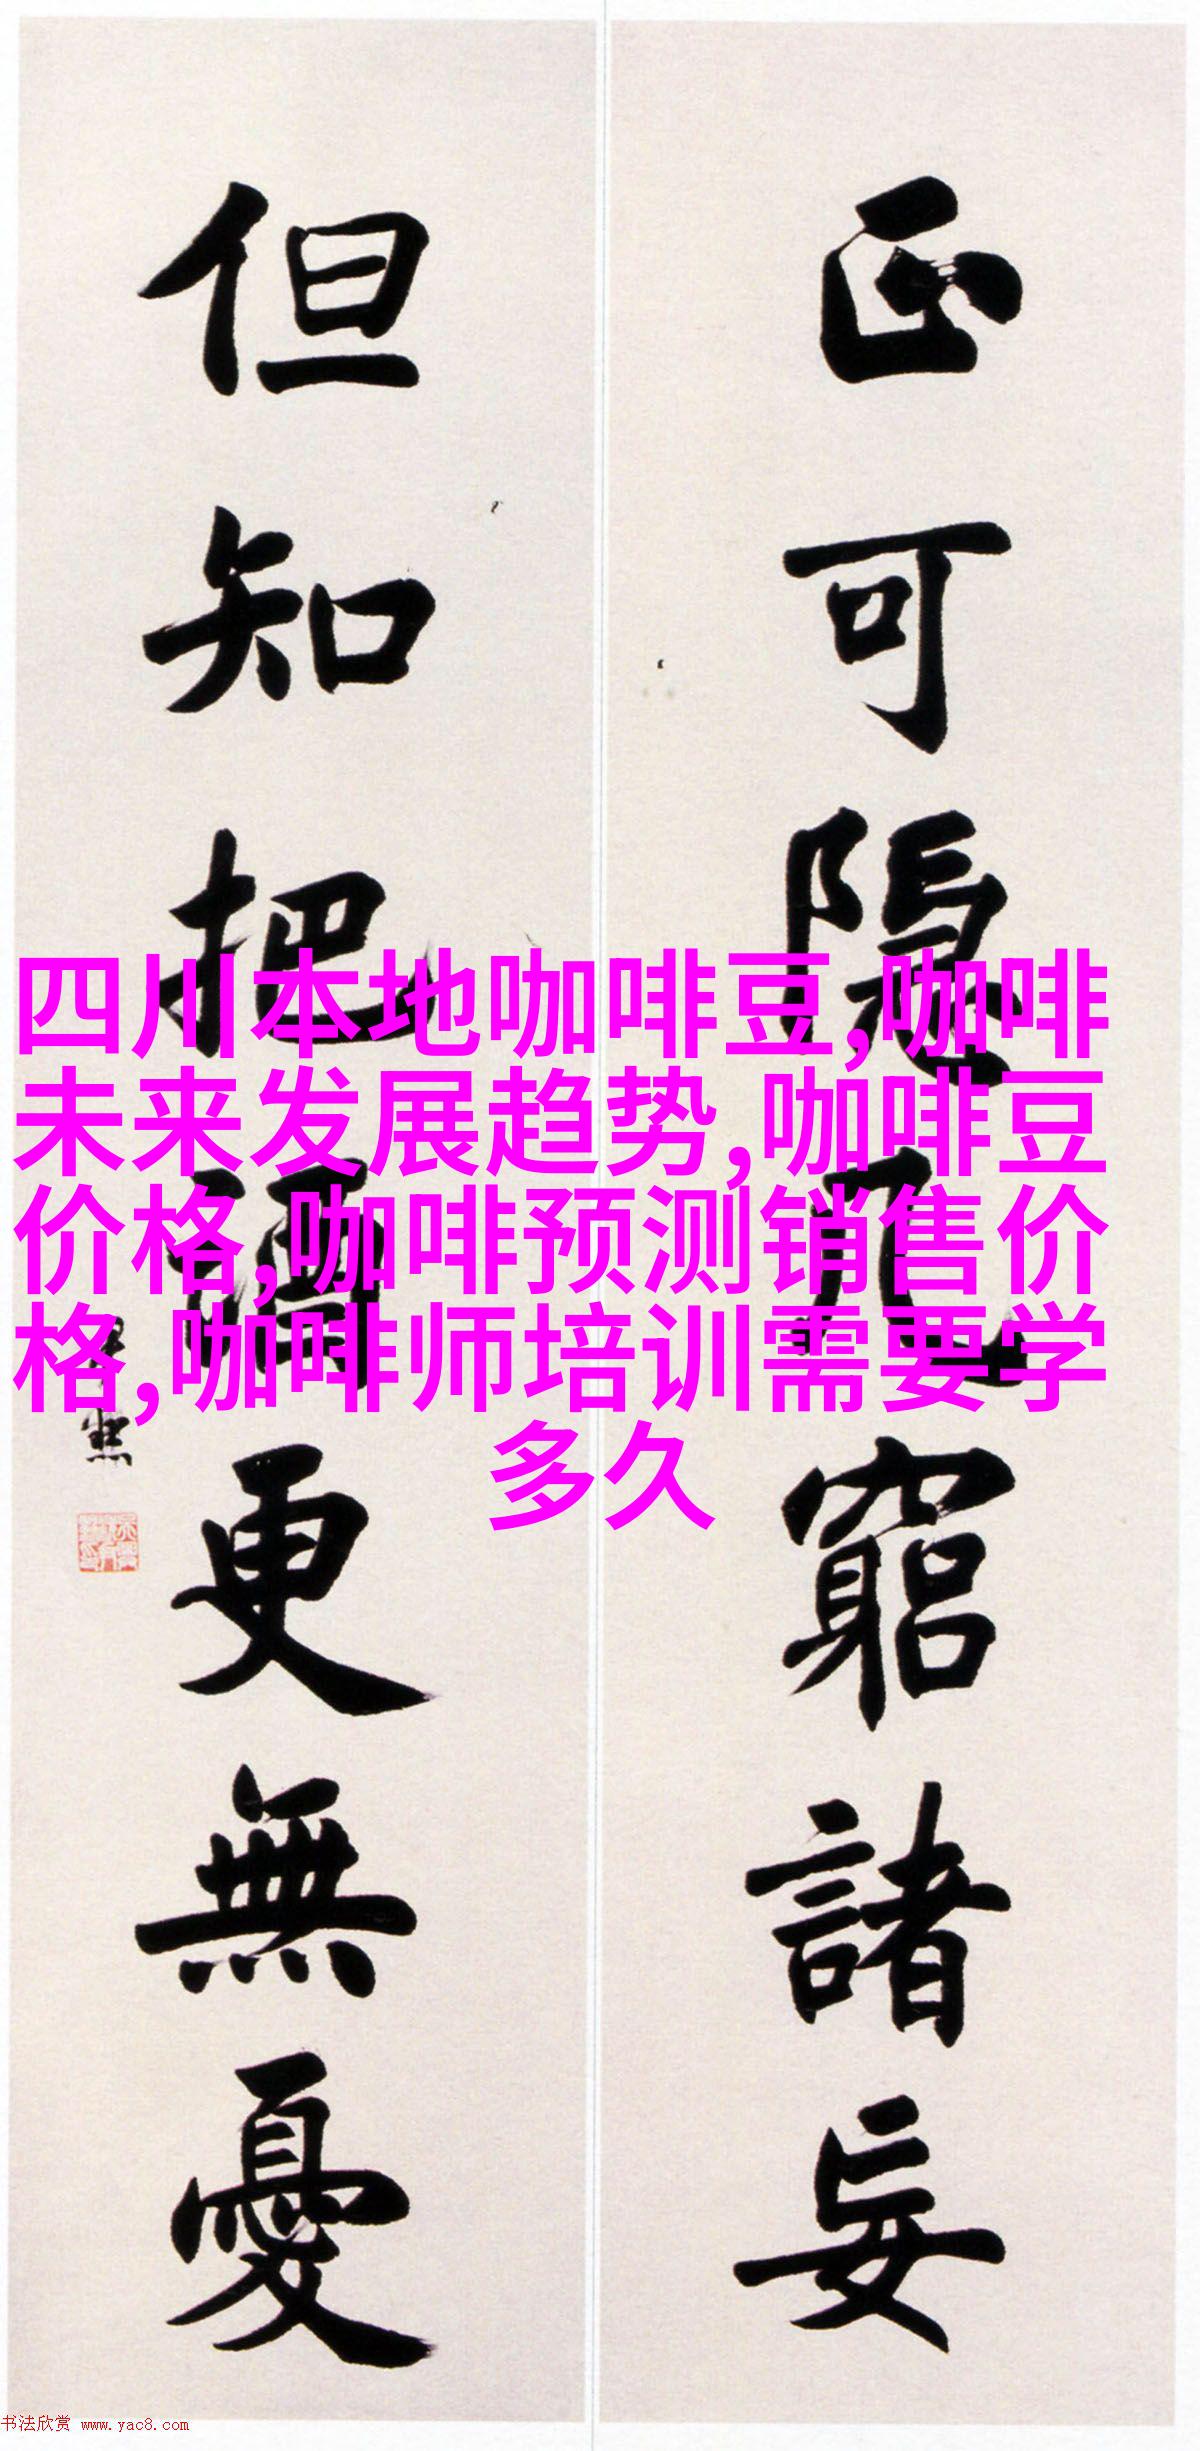 正可隱几窮諸妄
但知把更無憂
四川本地咖啡豆,咖啡
未来发展趋势,咖啡豆
价格,咖啡预测销售价
格,咖啡师培训需要学
多久
书法欣赏 www.yac8.com